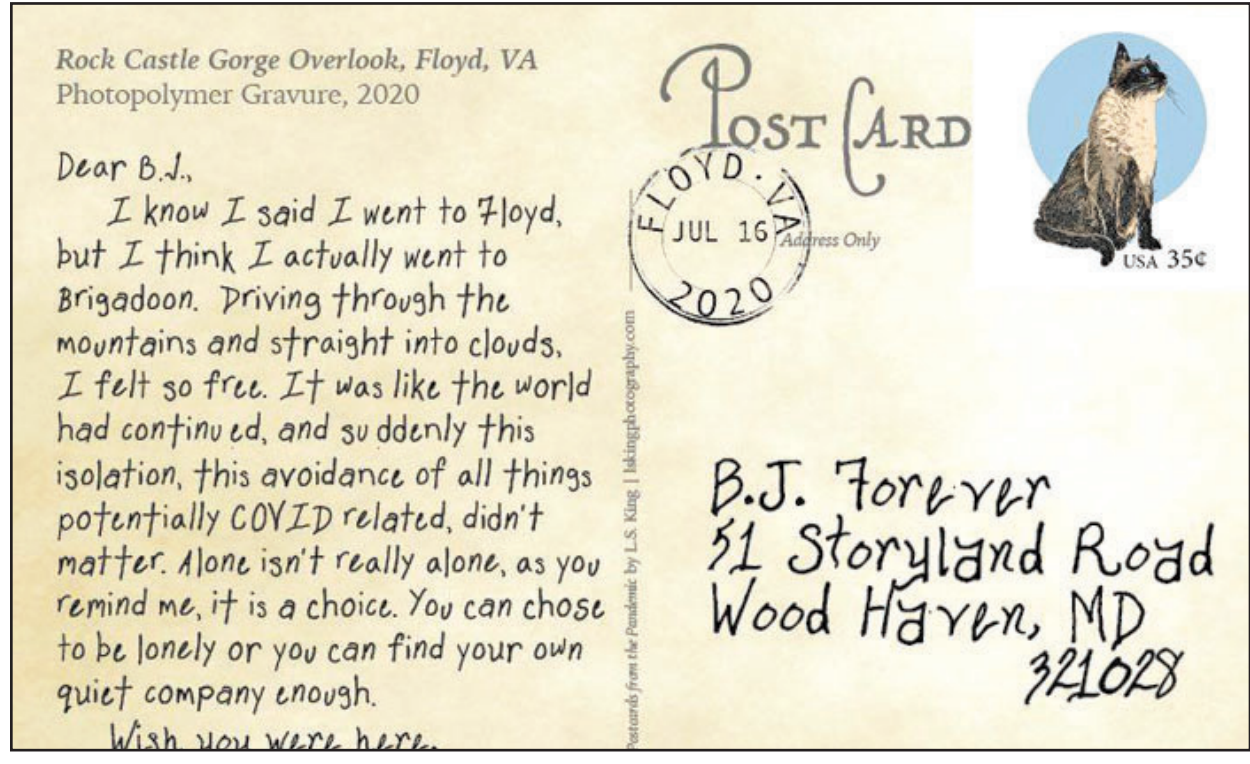 Rock Castle Gorge Overlook, Floyd, VA
Photopolymer Gravure, 2020
Dear B.J.,
I know I said I went to Floyd,
but I think I actually went to
Brigadoon. Driving through the
mountains and straight into clouds,
I felt so free. It was like the world
had continued, and suddenly this
isolation, this avoidance of all things
potentially COVID related, didn't
matter. Alone isn't really alone, as you
remind me, it is a choice. You can chose
to be lonely or you can find your own
quiet company enough.
Wish you were here.
Postcards from the Pandemic by L.S. King | lskingphotography.com
POST CARD
Address Only
FLOYD · VA
JUL 16
2020
USA 35¢
B.J. Forever
51 Storyland Road
Wood Haven, MD
321028